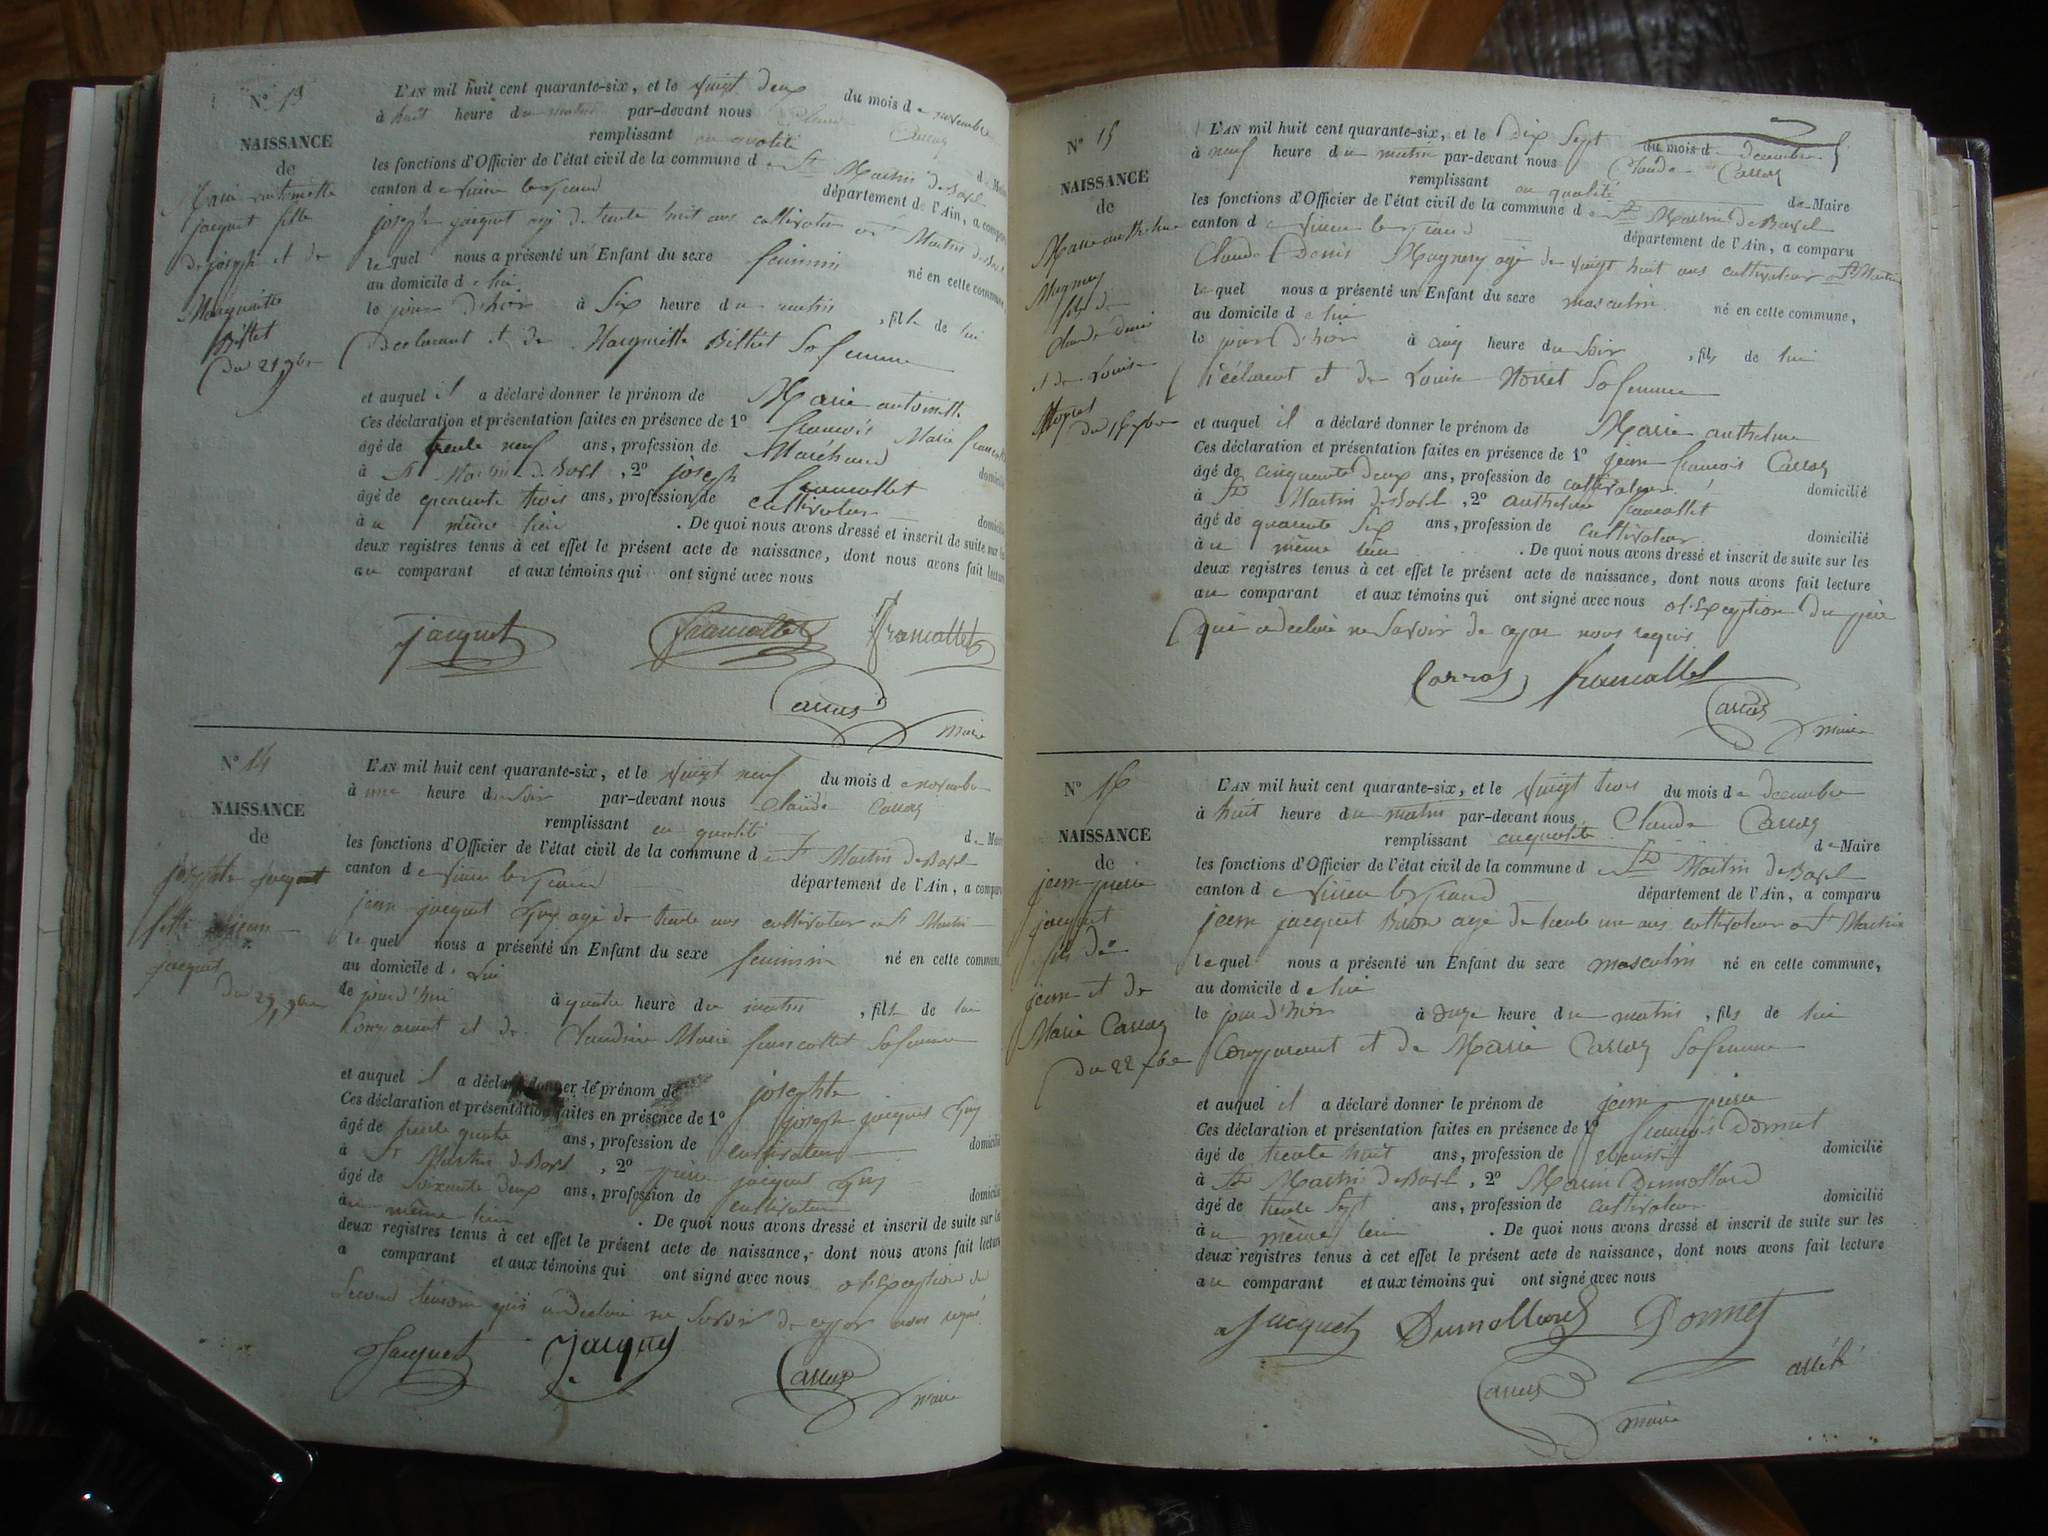 N° 13
NAISSANCE
de
Marie antoinette
jacquet fille
de joseph et de
Marguerite
Billet
du 21 9bre
L'AN mil huit cent quarante-six, et le vingt deux du mois de novembre
à huit heure du matin par-devant nous Claude Carraz
remplissant en qualité de Maire
les fonctions d'Officier de l'état civil de la commune de St Martin de Bavel
canton de virieu le grand département de l'Ain, a comparu
joseph jacquet agé de trente huit ans cultivateur à St Martin de Bavel
lequel nous a présenté un Enfant du sexe feminin né en cette commune
au domicile de lui
le jour d'hier à Six heure du matin, fille de lui
Declarant et de Marguerite Billet Sa femme
et auquel il a déclaré donner le prénom de Marie antoinette
Ces déclaration et présentation faites en présence de 1° francois Marie
âgé de trente neuf ans, profession de Maréchand domicilié
à St Martin de Bavel, 2° joseph francallet
âgé de quarante trois ans, profession de cultivateur domicilié
à u même lieu. De quoi nous avons dressé et inscrit de suite sur les
deux registres tenus à cet effet le présent acte de naissance, dont nous avons fait lecture
au comparant et aux témoins qui ont signé avec nous
jacquet francallet francallet
Carraz
maire
N° 14
NAISSANCE
de
josephte jacquet
fille de jean
jacquet
du 29 9bre
L'AN mil huit cent quarante-six, et le vingt neuf du mois de novembre
à une heure du soir par-devant nous Claude Carraz
remplissant en qualité de Maire
les fonctions d'Officier de l'état civil de la commune de St Martin de Bavel
canton de virieu le grand département de l'Ain, a comparu
jean jacquet Guy agé de trente ans cultivateur à St Martin
lequel nous a présenté un Enfant du sexe feminin né en cette commune
au domicile de Lui
le jour d'hui à quatre heure du matin, fille de lui
Comparant et de Claudine Marie francallet Sa femme
et auquel il a déclaré donner le prénom de josephte
Ces déclaration et présentation faites en présence de 1° joseph jacquet Guy
âgé de trente quatre ans, profession de cultivateur domicilié
à St Martin de Bavel, 2° pierre jacquet Guy
âgé de Soixante deux ans, profession de cultivateur domicilié
au même lieu. De quoi nous avons dressé et inscrit de suite sur les
deux registres tenus à cet effet le présent acte de naissance, dont nous avons fait lecture
a comparant et aux témoins qui ont signé avec nous à l'Exception du
Second temoin qui a declaré ne Savoir de ce requis
Jacquet Jacquet
Carraz
maire
N° 15
NAISSANCE
de
Marie anthelme
Mugnery
fils de
Claude denis
et de Louise
du 16 xbre
L'AN mil huit cent quarante-six, et le Dix Sept du mois de decembre
à neuf heure du matin par-devant nous Claude Carraz
remplissant en qualité de Maire
les fonctions d'Officier de l'état civil de la commune de St Martin de Bavel
canton de virieu le grand département de l'Ain, a comparu
Claude Denis Mugnery agé de vingt huit ans cultivateur à St Martin
lequel nous a présenté un Enfant du sexe masculin né en cette commune,
au domicile de lui
le jour d'hier à cinq heure du Soir, fils de lui
Déclarant et de Louise Sa femme
et auquel il a déclaré donner le prénom de Marie anthelme
Ces déclaration et présentation faites en présence de 1° jean francois Carraz
âgé de cinquante Deux ans, profession de cultivateur domicilié
à St Martin de Bavel, 2° anthelme francallet
âgé de quarante Six ans, profession de cultivateur domicilié
à u même lieu. De quoi nous avons dressé et inscrit de suite sur les
deux registres tenus à cet effet le présent acte de naissance, dont nous avons fait lecture
au comparant et aux témoins qui ont signé avec nous à l'Exception du père
qui a declaré ne Savoir de ce requis
Carraz francallet
Carraz
maire
N° 16
NAISSANCE
de
jean pierre
jacquet
fils de
jean et de
Marie Carraz
du 22 xbre
L'AN mil huit cent quarante-six, et le vingt trois du mois de decembre
à huit heure du matin par-devant nous Claude Carraz
remplissant en qualité de Maire
les fonctions d'Officier de l'état civil de la commune de St Martin de Bavel
canton de virieu le grand département de l'Ain, a comparu
jean jacquet agé de trente un ans cultivateur à St Martin
lequel nous a présenté un Enfant du sexe masculin né en cette commune,
au domicile de lui
le jour d'hier à onze heure du matin, fils de lui
Comparant et de Marie Carraz Sa femme
et auquel il a déclaré donner le prénom de jean pierre
Ces déclaration et présentation faites en présence de 1° francois Dornet
âgé de trente huit ans, profession de domicilié
à St Martin de Bavel, 2° Marin Dumollard
âgé de trente Sept ans, profession de cultivateur domicilié
à u même lieu. De quoi nous avons dressé et inscrit de suite sur les
deux registres tenus à cet effet le présent acte de naissance, dont nous avons fait lecture
au comparant et aux témoins qui ont signé avec nous
Jacquet Dumollard Dornet
Carraz
arrêté
maire